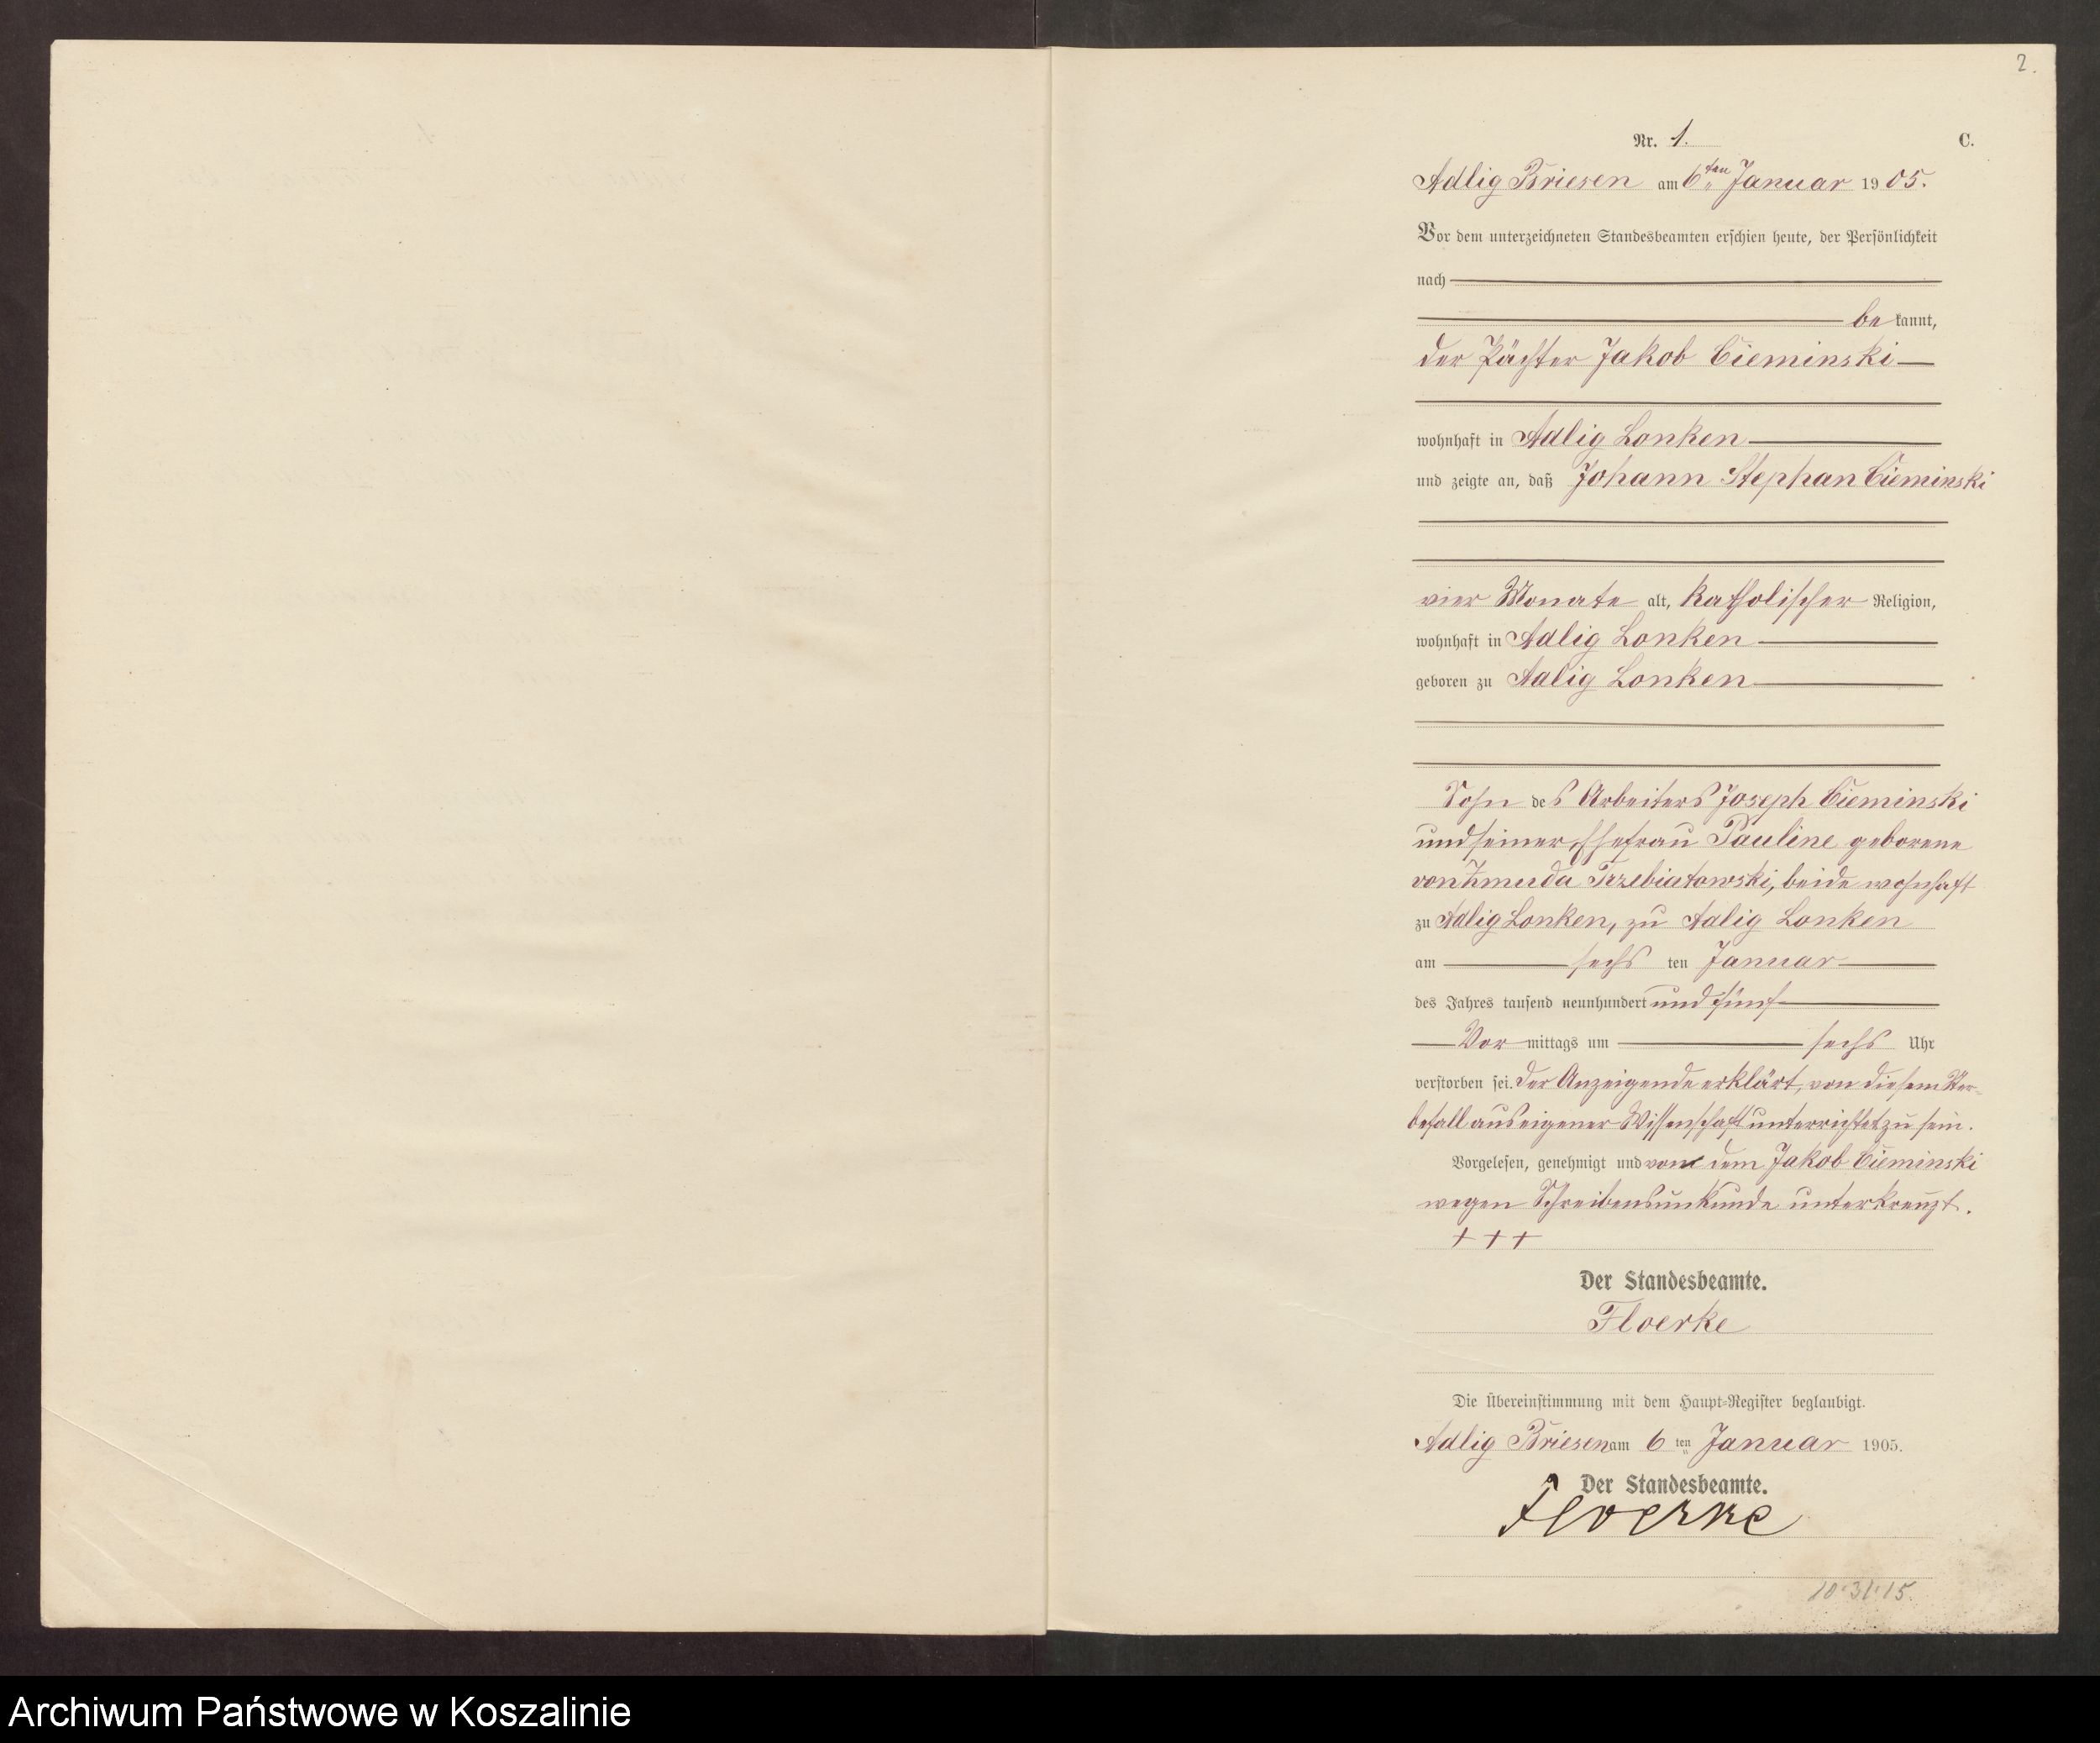 2.
Nr. 1.
C.
Adlig Briesen am 6ten Januar 1905.
Vor dem unterzeichneten Standesbeamten erschien heute, der Persönlichkeit
nach
be kannt,
der Pächter Jakob Cieminski
wohnhaft in Adlig Lonken
und zeigte an, daß Johann Stephan Cieminski
vier Monate alt, katholischer Religion,
wohnhaft in Adlig Lonken
geboren zu Adlig Lonken
Sohn des Arbeiters Joseph Cieminski
und seiner Ehefrau Pauline geborene
von Zmuda Trzebiatowski, beide wohnhaft
zu Adlig Lonken, zu Adlig Lonken
am sechs ten Januar
des Jahres tausend neunhundert und fünf
Vor mittags um sechs Uhr
verstorben sei. Der Anzeigende erklärt, von diesem Ster-
befall aus eigener Wissenschaft unterrichtet zu sein.
Vorgelesen, genehmigt und von dem Jakob Cieminski
wegen Schreibensunkunde unterkreuzt.
+++
Der Standesbeamte.
Floerke
Die Übereinstimmung mit dem Haupt-Register beglaubigt.
Adlig Briesen am 6 ten Januar 1905.
Der Standesbeamte.
Floerke
10·31·15.
Archiwum Państwowe w Koszalinie